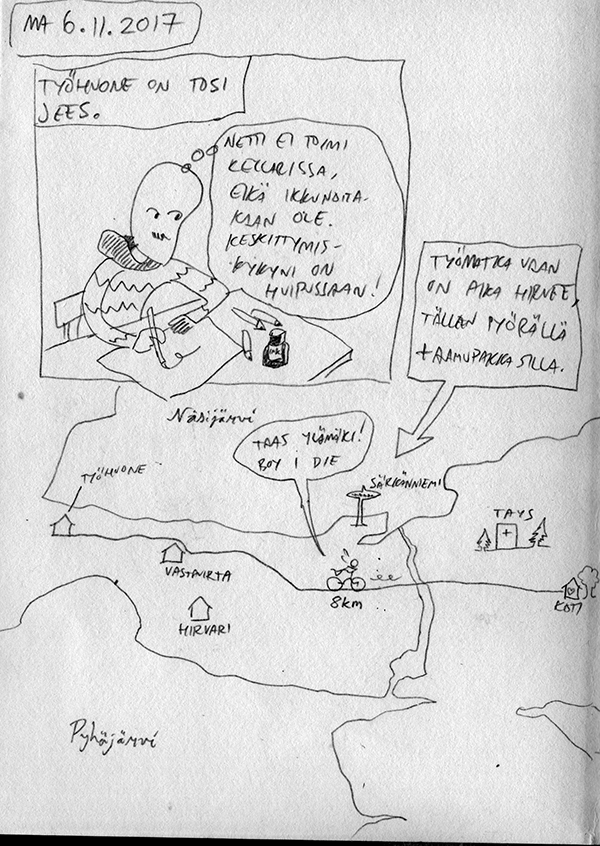 MA 6.11.2017
TYÖHUONE ON TOSI
JEES.
NETTI EI TOIMI
KELLARISSA,
EIKÄ IKKUNOITA-
KAAN OLE.
KESKITTYMIS-
KYKYNI ON
HUIPUSSAAN!
TYÖMATKA VAAN
ON AIKA HIRVEE,
TÄLLEN PYÖRÄLLÄ
+ AAMUPAKKASILLA.
Näsijärvi
TAAS YLÄMÄKI!
BOY I DIE
TYÖHUONE
SÄRKÄNNIEMI
TAYS
VASTAVIRTA
8km
KOTI
HIRVARI
Pyhäjärvi